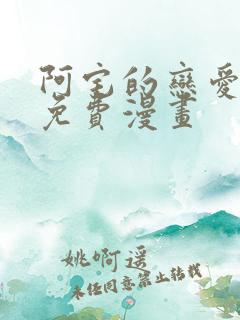 阿宅的戀愛
免費漫畫
姚啊遥
未经同意禁止转载